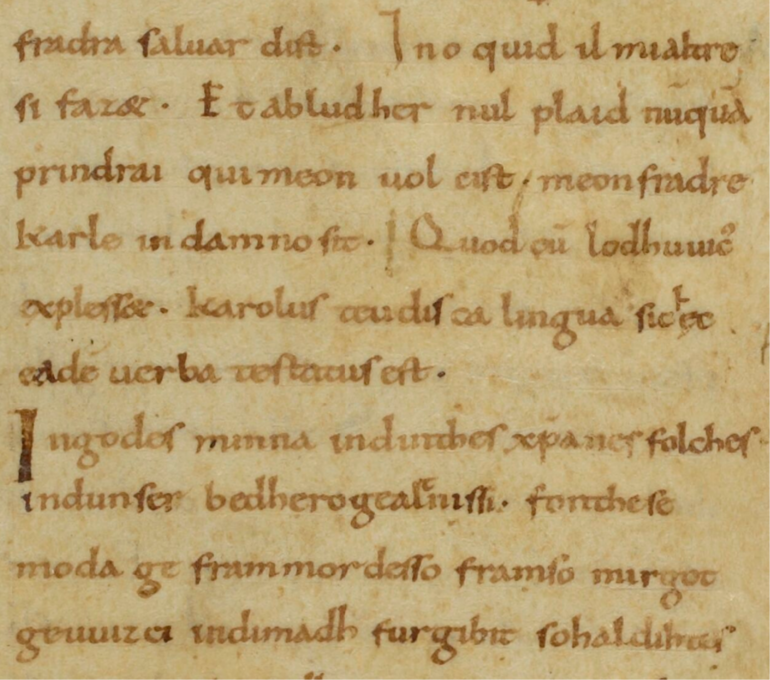 fradra saluar dift. Ino quid il mialtre
si fazæt. Et abludher nul plaid nūquā
prindrai qui meon uol cist. meon fradre
karle in damno sit. Quod cū lodhuuic᷒
explesset. karolus teudisca lingua sic ec
eadē uerba testatus est.
Ingodes minna induithes xpānes folches
indunser bedhero gealnissi. fonthese
moda ge frammordesso framso mirgot
geuuizci indimadh furgibit sohaldihtes